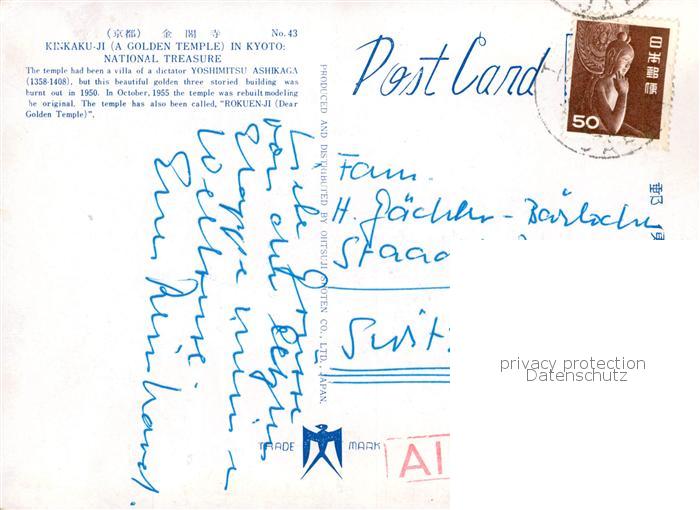 (京都) 金閣寺 No. 43
KINKAKU-JI (A GOLDEN TEMPLE) IN KYOTO:
NATIONAL TREASURE
The temple had been a villa of a dictator YOSHIMITSU ASHIKAGA
(1358-1408), but this beautiful golden three storied building was
burnt out in 1950. In October, 1955 the temple was rebuilt modeling
he original. The temple has also been called, "ROKUEN-JI (Dear
Golden Temple)".
Post Card
日本郵便
50
郵
PRODUCED AND DISTRIBUTED BY OHTSUJI SHOTEN CO., LTD., JAPAN.
Liebe Grüsse
von der
Etappe
Weltreise
Fam.
H. Gächter - Bärlocher
Staad
Swit
TRADE MARK
AI
privacy protection
Datenschutz